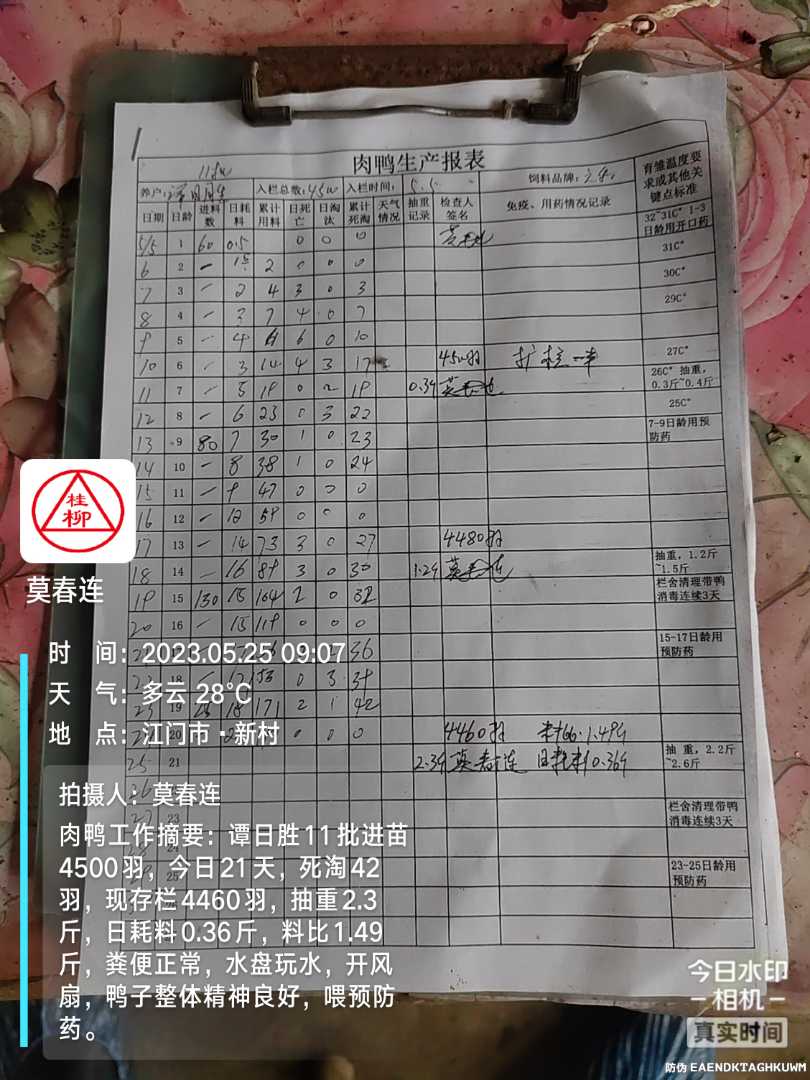 肉鸭生产报表
养户: 入栏总数:4500 入栏时间:5.5 饲料品牌:
育雏温度要求或其他关键点标准
日期 日龄 进料数 日耗料 累计用料 日死亡 日淘汰 累计死淘 天气情况 抽重记录 检查人签名 免疫、用药情况记录
5/5 1 60 0.5 0 0 0 32~31C° 1-3日龄用开口药
6 2 - 1.5 2 0 0 0 31C°
7 3 - 2 4 3 0 3 30C°
8 4 - 3 7 4 0 7 29C°
9 5 - 4 11 6 0 10
10 6 - 3 14 4 3 17 450羽 27C°
11 7 - 5 19 0 2 19 0.39 莫春连 26C° 抽重,0.3斤~0.4斤
12 8 - 6 23 0 3 22 25C°
13 9 80 7 30 1 0 23 7-9日龄用预防药
14 10 - 8 38 1 0 24
15 11 - 9 47 0 0 0
16 12 - 12 59 0 0 0
17 13 - 14 73 3 0 27 4480羽
18 14 - 16 89 3 0 30 莫春连 抽重,1.2斤~1.5斤
19 15 130 15 104 2 0 32 栏舍清理带鸭消毒连续3天
20 16 - 15 119 0 0 0
36 15-17日龄用预防药
18 0 3 39
19 18 171 2 1 42
20 0 0 0 4460羽 1.49
25 21 2.3 莫春连 日耗料0.36 抽重,2.2斤~2.6斤
栏舍清理带鸭消毒连续3天
23-25日龄用预防药
桂柳
莫春连
时 间:2023.05.25 09:07
天 气:多云 28℃
地 点:江门市·新村
拍摄人:莫春连
肉鸭工作摘要:谭日胜11批进苗
4500羽，今日21天，死淘42
羽，现存栏4460羽，抽重2.3
斤，日耗料0.36斤，料比1.49
斤，粪便正常，水盘玩水，开风
扇，鸭子整体精神良好，喂预防
药。
今日水印
-相机-
真实时间
防伪 EAENDKTAGHKUWM